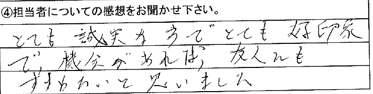 ④担当者についての感想をお聞かせ下さい。
とても誠実な方でとても好印象
で、機会があれば、友人にも
すすめたいと思いました